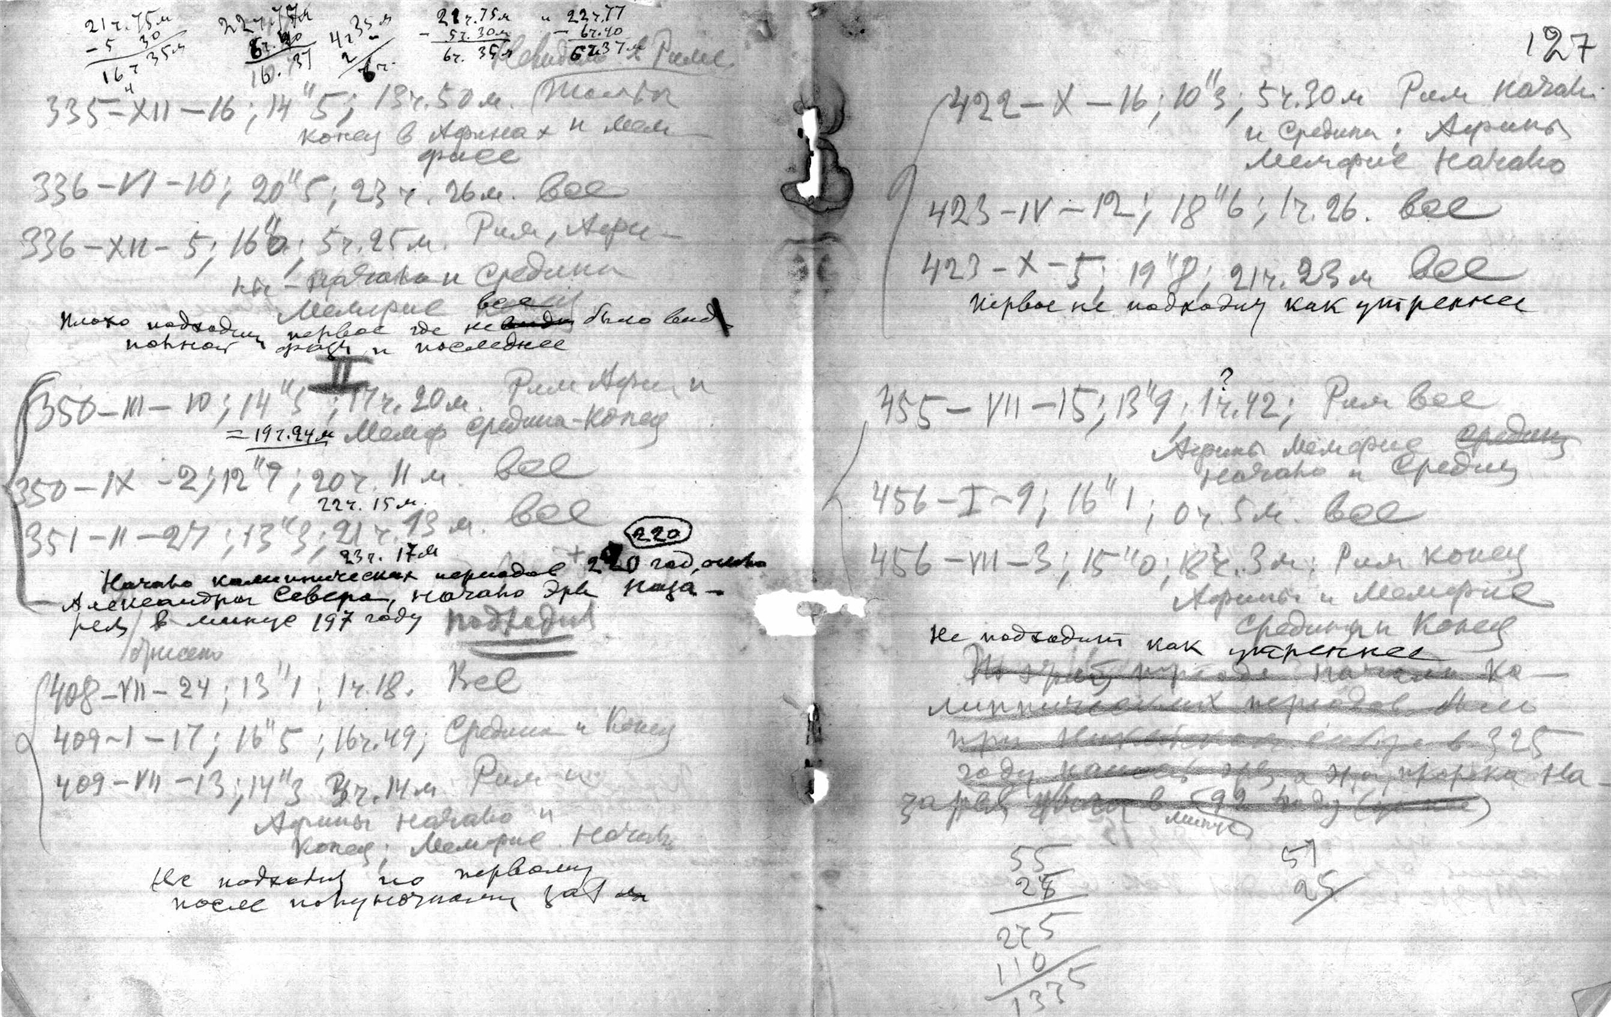 21ч.75м
-5 30
16ч 35м
22ч.77м
6ч.40
16.37
4ч35м
2
6ч.
21ч.75м
- 5ч.30м
6ч. 35м
и 22ч.77
- 6ч.40
6ч37м
в Риме.
335-XII-16; 14"5; 13ч.50м.
конец в Афинах и Мем-
фисе
336-VI-10; 20"5; 23ч. 26м. Все
336-XII-5; 16"0; 5ч.25м. Рим, Афи-
ны - начало и средина
Мемфис все
Плохо подходит первое где не было вид
полной фазы и последнее
II
350-III-10; 14"3; 17ч.20м. Рим Афин и
= 19ч.24м Мемф средина-конец
350-IX-2; 12"7; 20ч. 11м. все
22ч. 15м.
351-II-27; 13"3; 21ч.13м. все
23ч. 17м
220
Начало каллиппических периодов + 220 год, около
Александра Севера, начало Эры Наза-
рея в минус 197 году подходит
408-VII-24; 13"1; 1ч.18. Все
409-I-17; 16"5; 16ч.49; Средина и Конец
409-VII-13; 14"3 3ч.14м Рим и
Афины начало и
Конец; Мемфис начало
Не подходит по первому
после полуночному
127
422-X-16; 10"3; 5ч.30м Рим начало
и средина; Афины
Мемфис начало
423-IV-12; 18"6; 1ч.26. Все
423-X-5; 19"8; 21ч.23м Все
Первое не подходит как утреннее
?
455-VII-15; 13"9; 1ч.42; Рим все
Афины Мемфис средина
начало и средина
456-I-9; 16"1; 0ч.5м. Все
456-VII-3; 15"0; 18ч.3м; Рим конец
Афины и Мемфис
Средина и Конец
Не подходит как утреннее
По этой начало ка-
липпических периодов было
при Никейском соборе в 325
году начало эры а эра пророка На-
зарея в 592 году
минус
55
25
275
110
1335
51
25